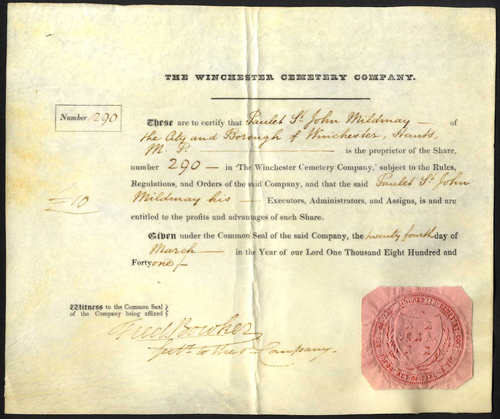 THE WINCHESTER CEMETERY COMPANY.
Number 290
These are to certify that Paulet St. John Mildmay — of
the City and Borough of Winchester, Hants,
M. P. — is the proprietor of the Share,
number 290 — in 'The Winchester Cemetery Company,' subject to the Rules,
Regulations, and Orders of the said Company, and that the said Paulet St. John
Mildmay his — Executors, Administrators, and Assigns, is and are
entitled to the profits and advantages of such Share.
Given under the Common Seal of the said Company, the twenty fourth day of
March — in the Year of our Lord One Thousand Eight Hundred and
Forty one
Witness to the Common Seal
of the Company being affixed
Fredk Bowker
to the sd Company.